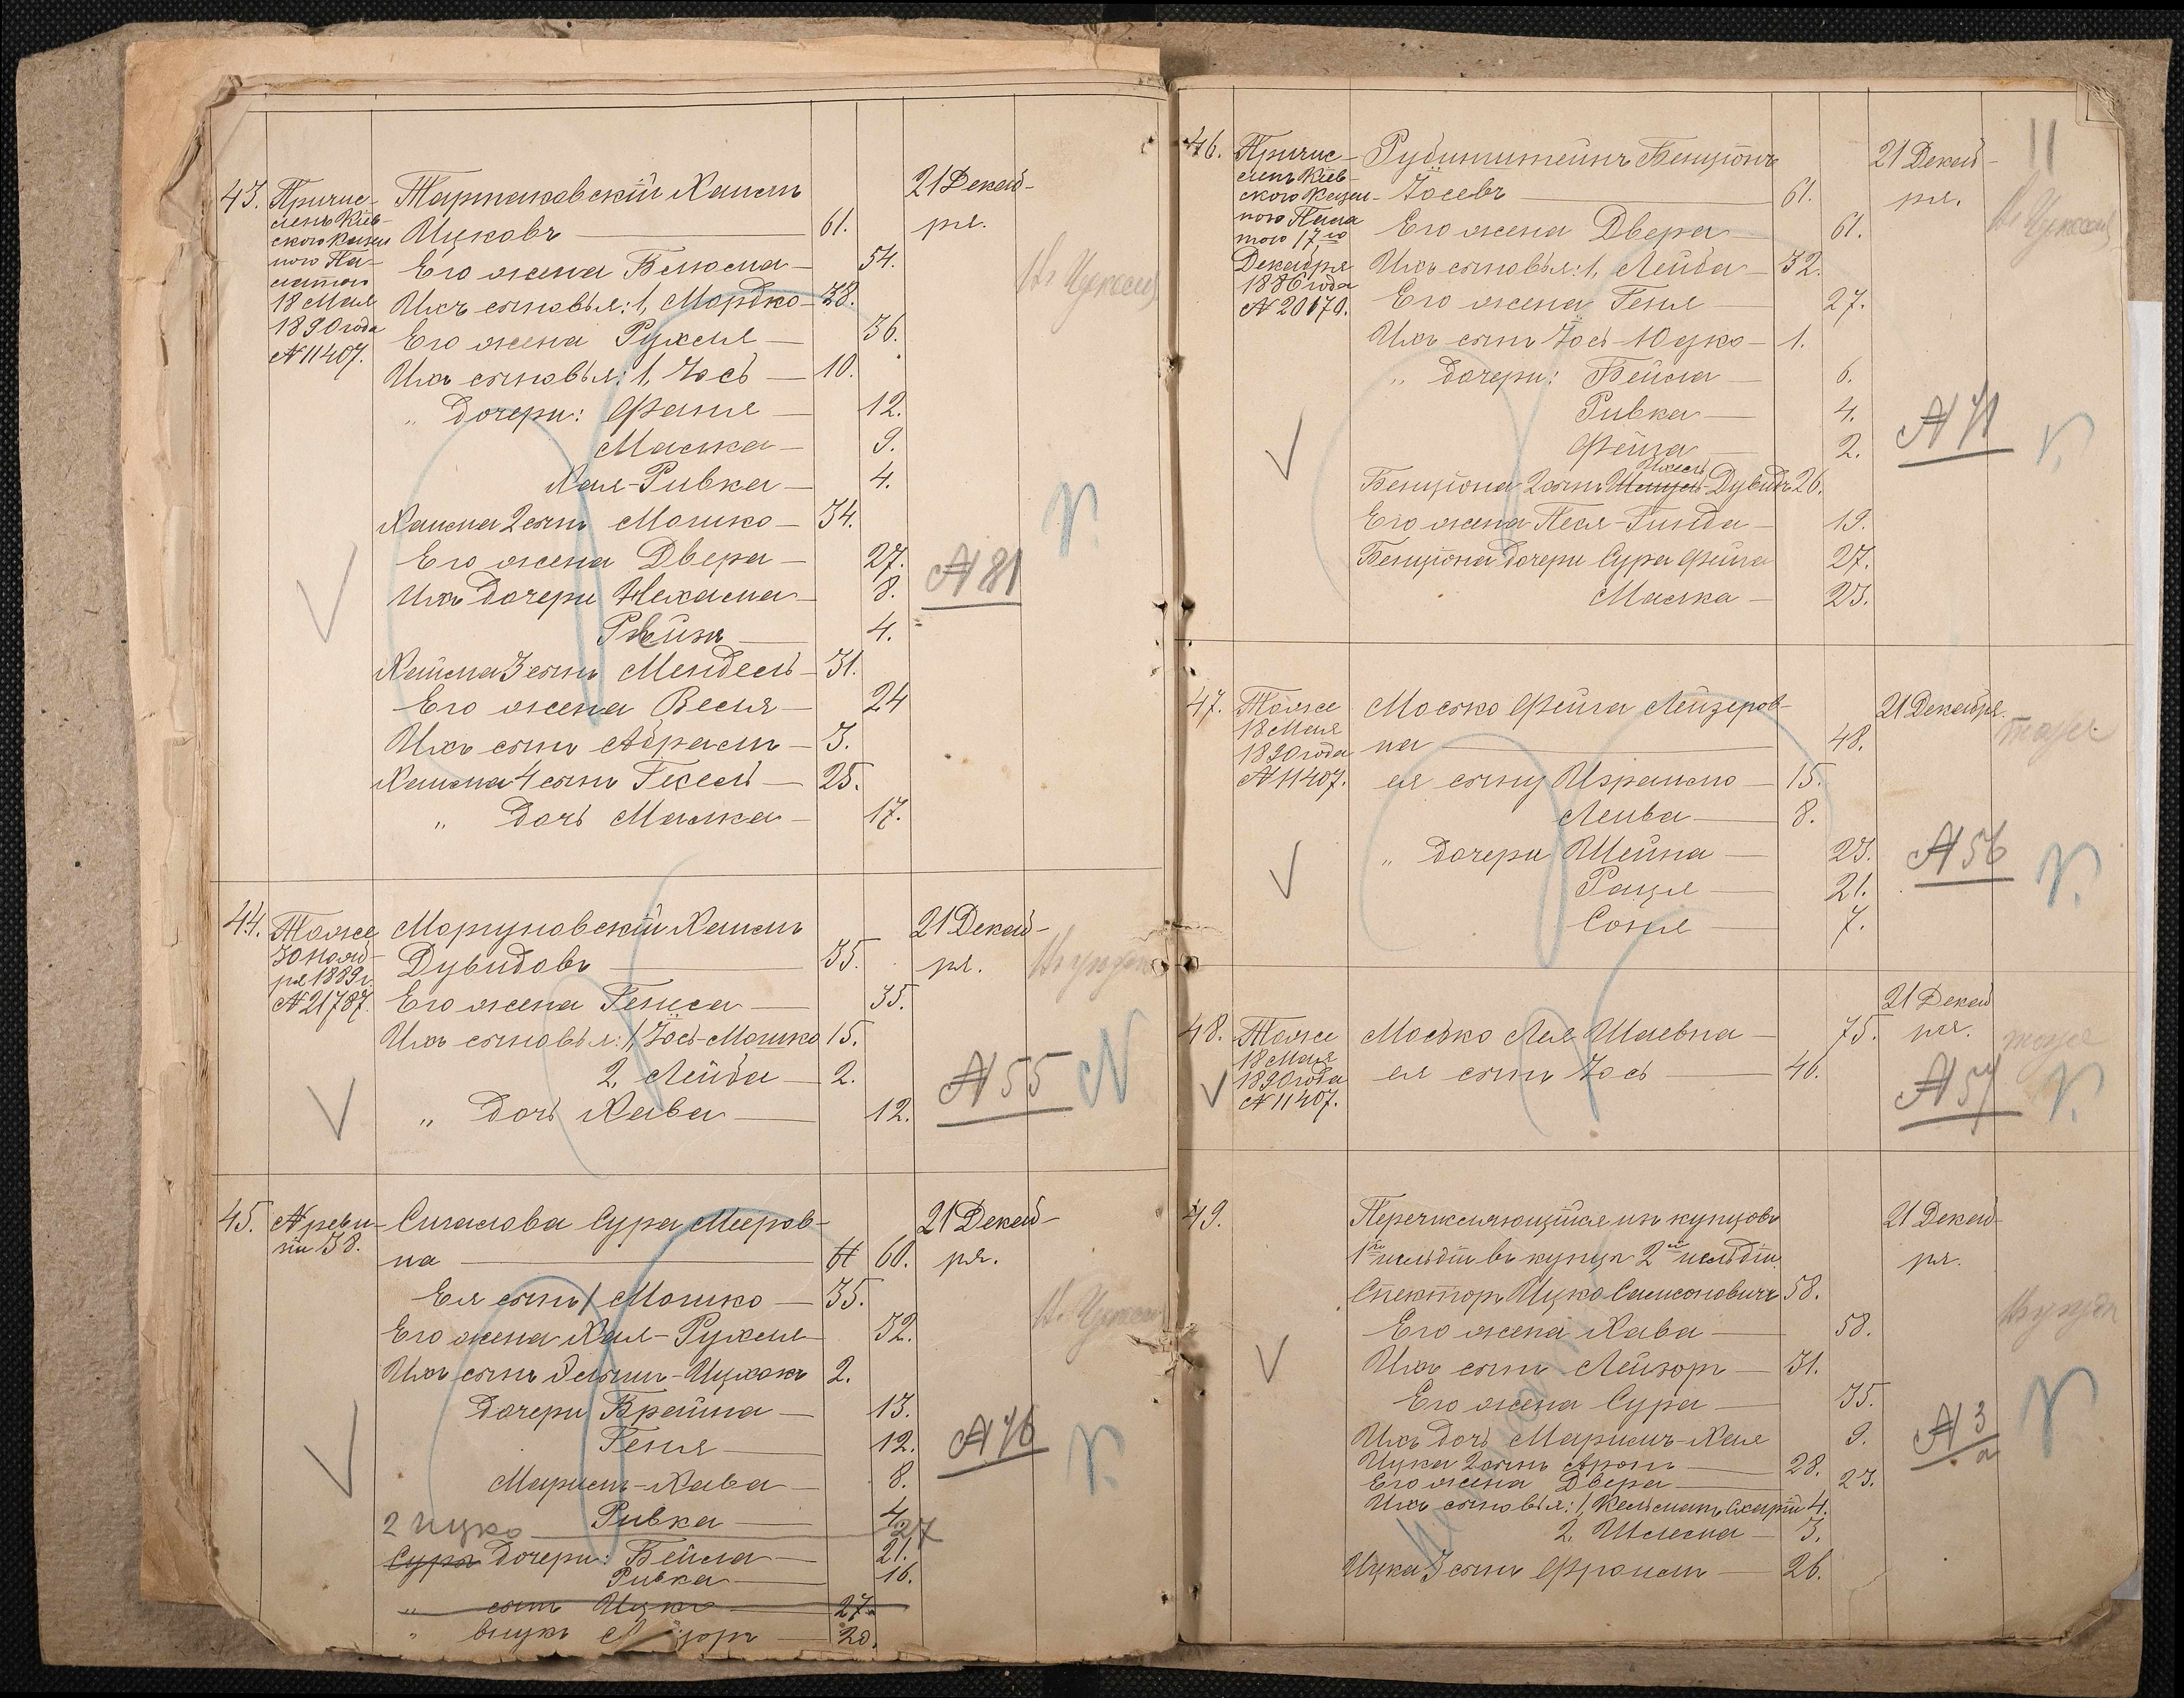 43. Причис-
ленъ Кіев-
скою Казен
ною Па-
латою
18 Мая
1890 года
№ 11407.
Тартаковскій Хаимъ
Ицковъ — 61.
21 Декаб-
ря.
Его жена Блюма — 54.
Ихъ сыновья: 1, Мордко — 38.
Его жена Рухля — 36.
Ихъ сыновья: 1, Іось — 10.
„ дочери: Фаня — 12.
Малка — 9.
Хая-Ривка — 4.
Хаима 2 сынъ Мошко — 34.
Его жена Двера — 27.
№ 81
Ихъ дочери Нехама — 8.
4.
Хаима 3 сынъ Мендель — 31.
Его жена Весля — 24
Ихъ сынъ Абрамъ — 3.
Хаима 4 сынъ Гесель — 25.
„ дочь Малка — 17.
44. Тоже
30 нояб-
ря 1889 г.
№ 21787.
Моргуновскій Хаимъ
Дувидовъ — 35.
21 Декаб-
ря.
Его жена Гениса — 35.
Ихъ сыновья: 1, Іось-Мошко 15.
2, Лейба — 2.
№ 55
„ дочь Хава — 12.
45. № реви-
зіи 38.
Сигалова Сура Мееров-
на — 60.
21 Декаб-
ря.
Ея сынъ 1 Мошко — 35.
Его жена Хая-Рухля — 32.
Ихъ сынъ Зельманъ-Ицхокъ 2.
Дочери Брайна — 13.
Геня — 12.
№ 76
Марьемъ-Хава — 8.
Ривка — 4.
2 Ицко — 27
Сура дочери: Бейла — 21.
Ривка — 16.
„ сынъ Ицко — 27.
„ внукъ — 20.
11
46. Причис-
ленъ Кіев-
скою Казен-
ною Пала
тою 17го
Декабря
1886 года
№ 20170.
Рубинштейнъ Бенціонъ
Іосевъ — 61.
21 Декаб-
ря.
Его жена Двера — 61.
Ихъ сыновья: 1, Лейба — 32.
Его жена Геня — 27.
Ихъ сынъ Іось-Юдко — 1.
„ дочери: Бейла — 6.
Ривка — 4.
№ 71
Фейга — 2.
Бенціона 2 сынъ Дувидъ 26.
Его жена Песя-Гинда — 19.
Бенціона дочери Сура Фейга 27.
Малка — 23.
47. Тоже
18 Мая
1890 года
№ 11407.
Моско Фейга Лейзеров-
на — 48.
21 Декабря.
тоже
ея сыну Израилю — 15.
Лейба — 8.
„ дочери Шейна — 23.
№ 56
Рацля — 21.
Соня — 7.
48. Тоже
18 Мая
1890 года
№ 11407.
Моско Лея Шаевна — 75.
21 Декаб
ря.
тоже
ея сынъ Іось — 46.
№ 57
49.
Перечисляющійся изъ купцовъ
1й гильдіи въ купцы 2й гильдіи
Спекторъ Ицко Самсоновичъ 58.
21 Декаб-
ря.
Его жена Хава — 58.
Ихъ сынъ Лейзоръ — 31.
Его жена Сура — 35.
Ихъ дочь Марьимъ-Хая 9.
№ 3
а
Ицка 2 сынъ Аронъ — 28.
Его жена Двера — 23.
Ихъ сыновья: 1, 4.
2, Шлема — 3.
Ицка 3 сынъ Фроимъ — 26.